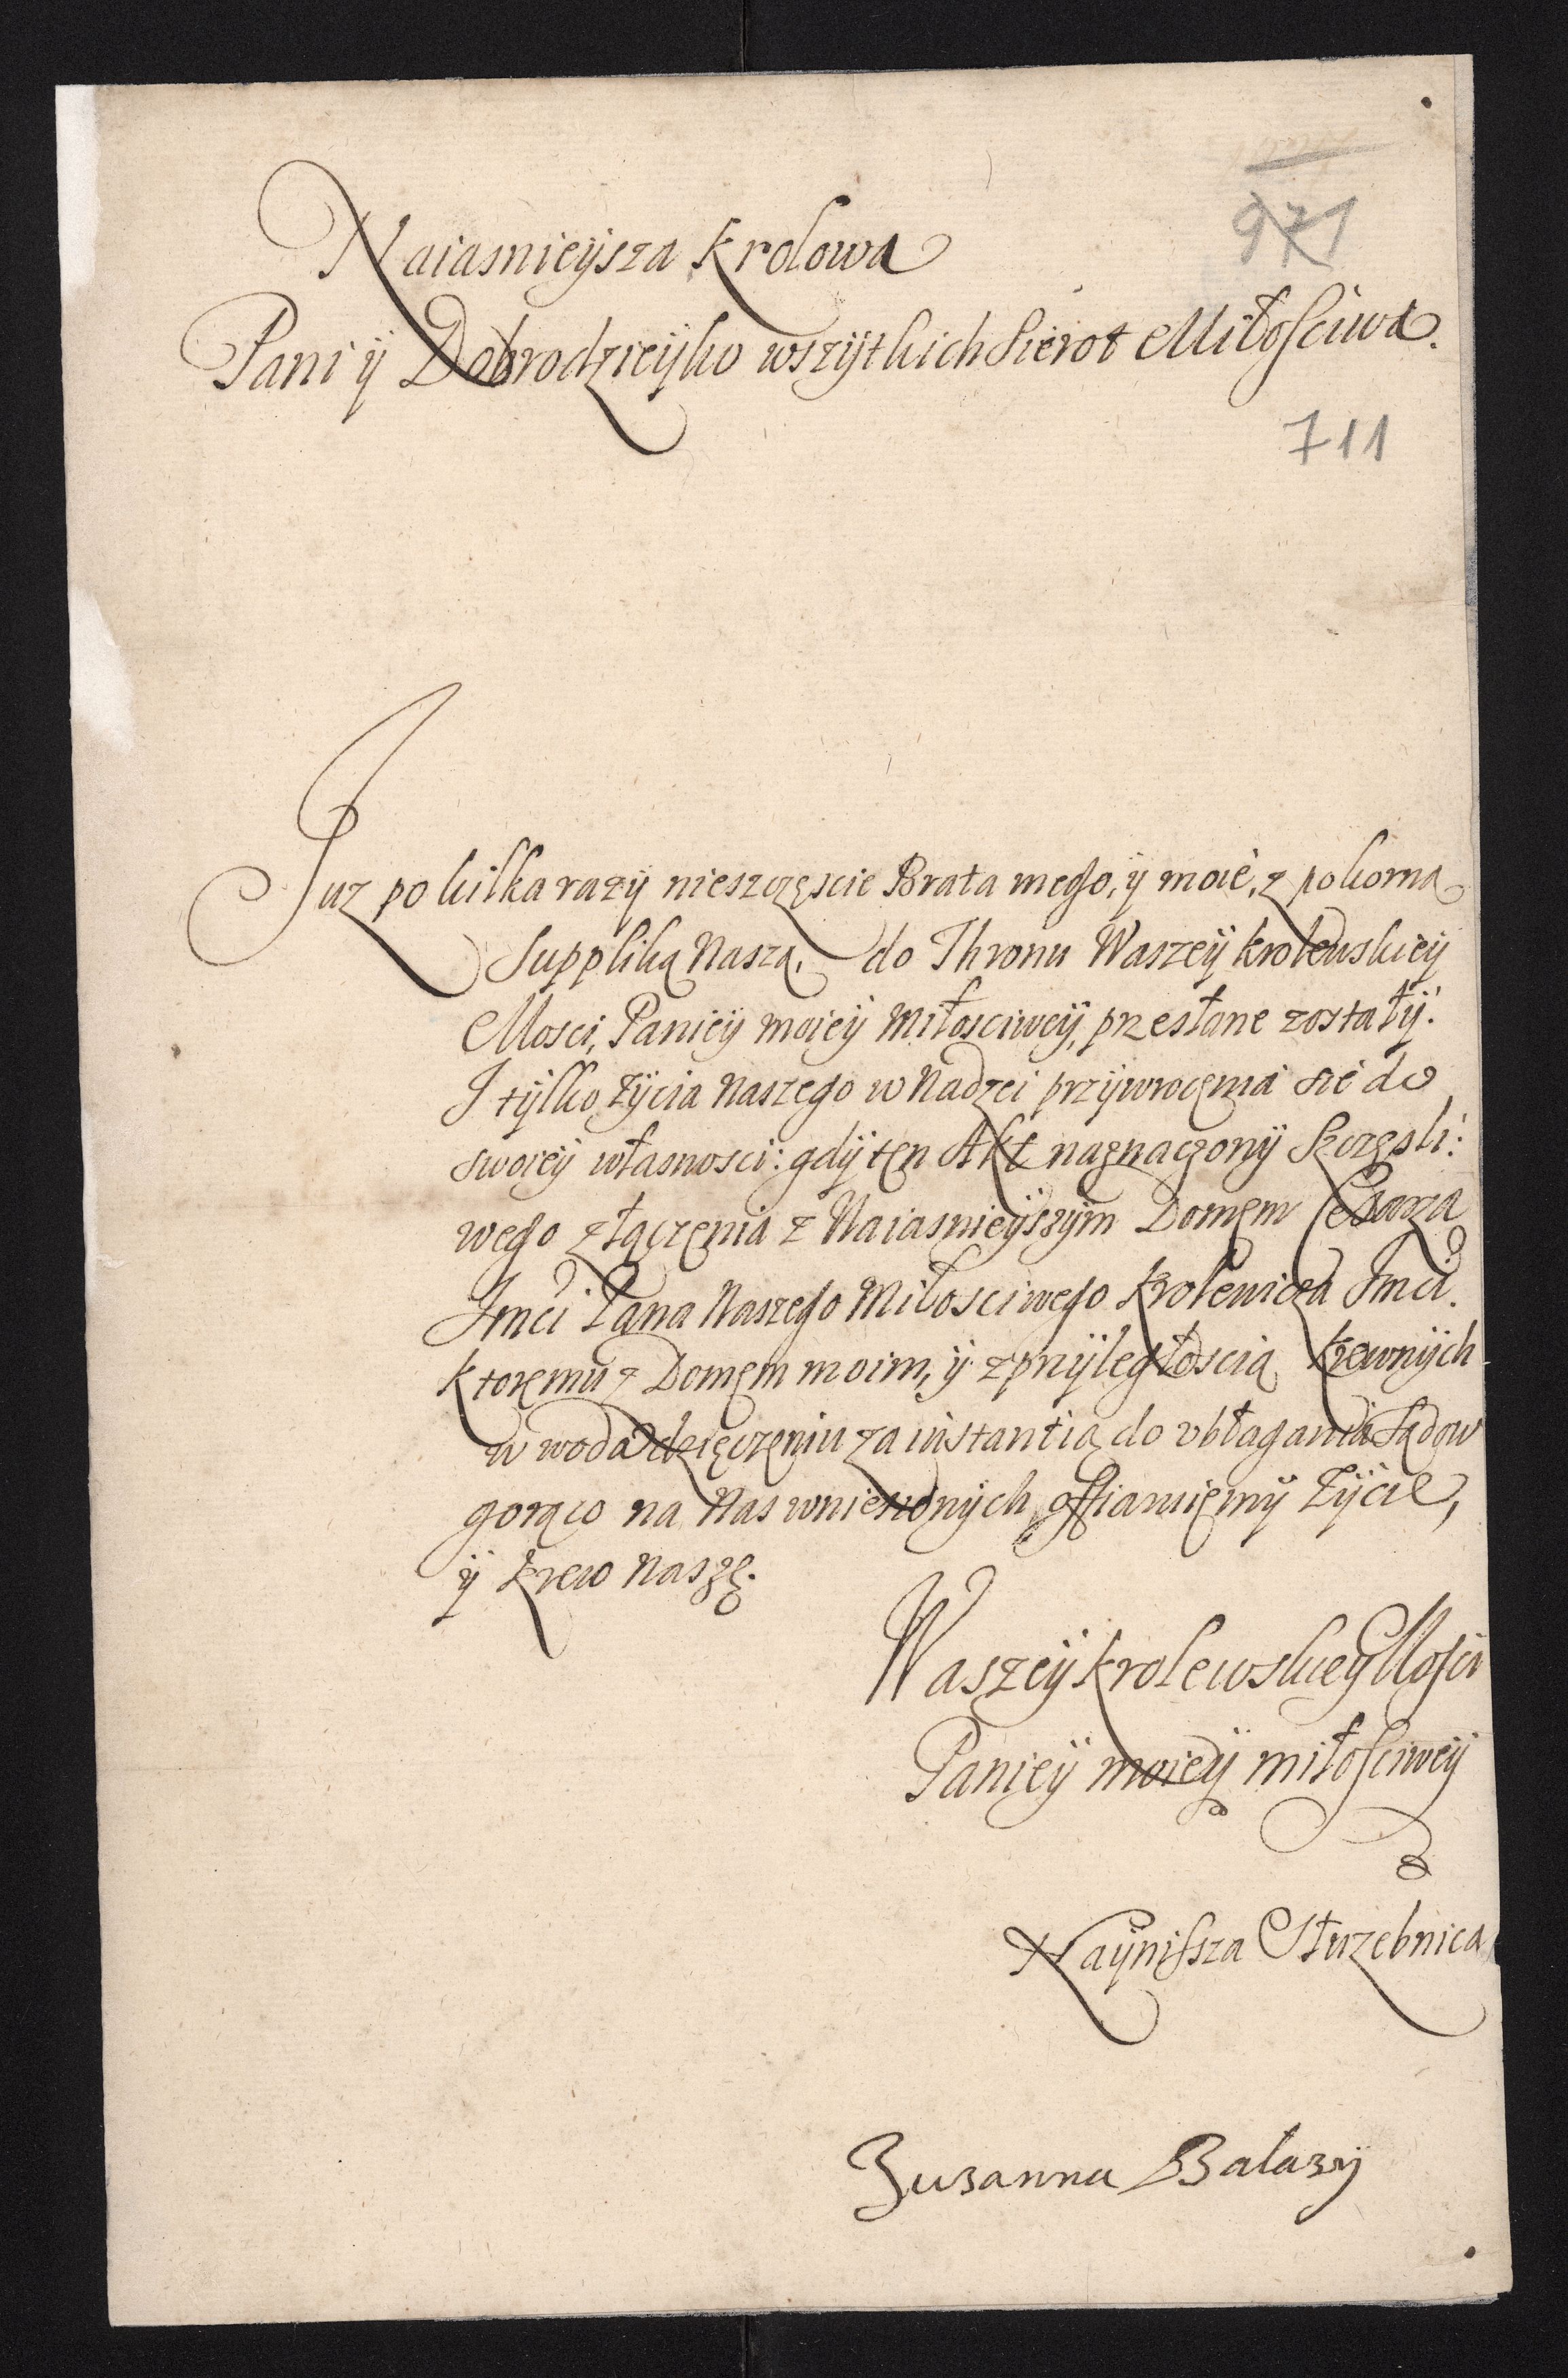 971
Naiasnieÿsza Krolowa
Pani ÿ Dobrodzieÿko wszÿtkich Sierot Miłościwa.
711
Juz po kilka razÿ nieszczęscie Brata mego, ÿ moie, z pokorną
Suppliką Naszą, do Thronu Waszeÿ Krolewskieÿ
Mosci, Panieÿ moieÿ Miłosciweÿ, przesłane zostałÿ.
J tÿlko Zÿcia Naszego w Nadzei przÿwrocenia sie do
swoieÿ własnosci: gdÿ ten Akt naznaczonÿ Sczęsli:
wego złączenia z Naiasnieÿszÿm Domem Cesarza
Jmci Pana Naszego Miłosciwego Krolewicza Jmci.
ktoremu z Domem moim, ÿ z przÿległoscią krewnÿch
w dzięczeniu za instantią do ubłagania Sądow
gorąco na Nas wniesionÿch, offiaruiemÿ Zÿcie,
ÿ krew naszę.
Waszeÿ Krolewskieÿ Mości
Panieÿ moieÿ miłościweÿ
Naÿniższa Służebnica
Zuzanna Bałaszÿ